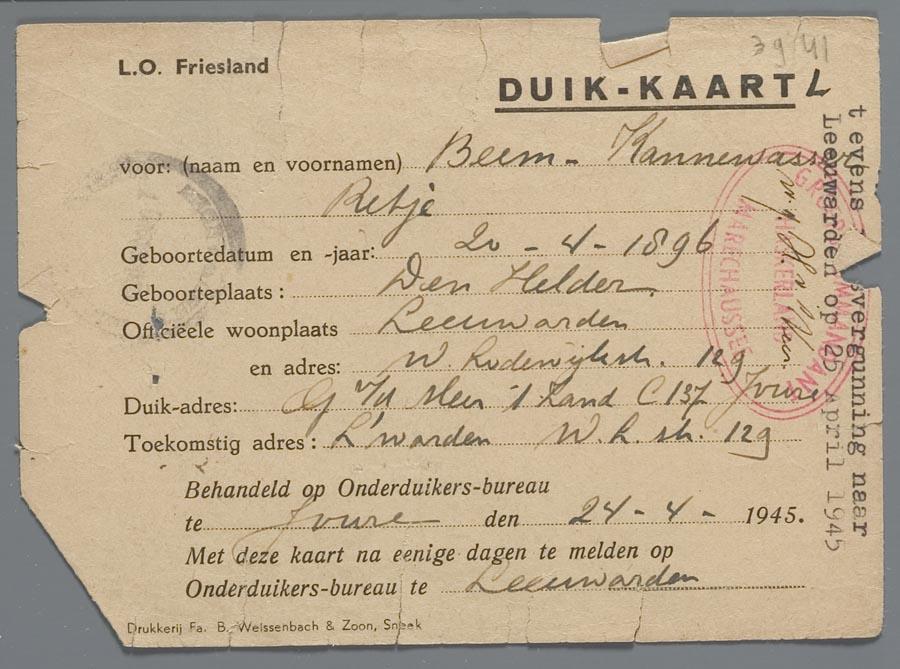 39/41
L.O. Friesland
DUIK-KAART L
voor: (naam en voornamen) Beem - Kannewasser
Betje
Geboortedatum en -jaar: 20 - 4 - 1896
Geboorteplaats: Den Helder
Officiëele woonplaats Leeuwarden
en adres: W. Lodewijkstr. 12g
Duik-adres: 't Zand C 137 Joure
Toekomstig adres: L'warden W. L. str. 12g
Behandeld op Onderduikers-bureau
te Joure den 24-4- 1945.
Met deze kaart na eenige dagen te melden op
Onderduikers-bureau te Leeuwarden
Drukkerij Fa. B. Weissenbach & Zoon, Sneek
t evens svergunning naar
Leeuwarden op 25 April 1945
MARECHAUSSEE